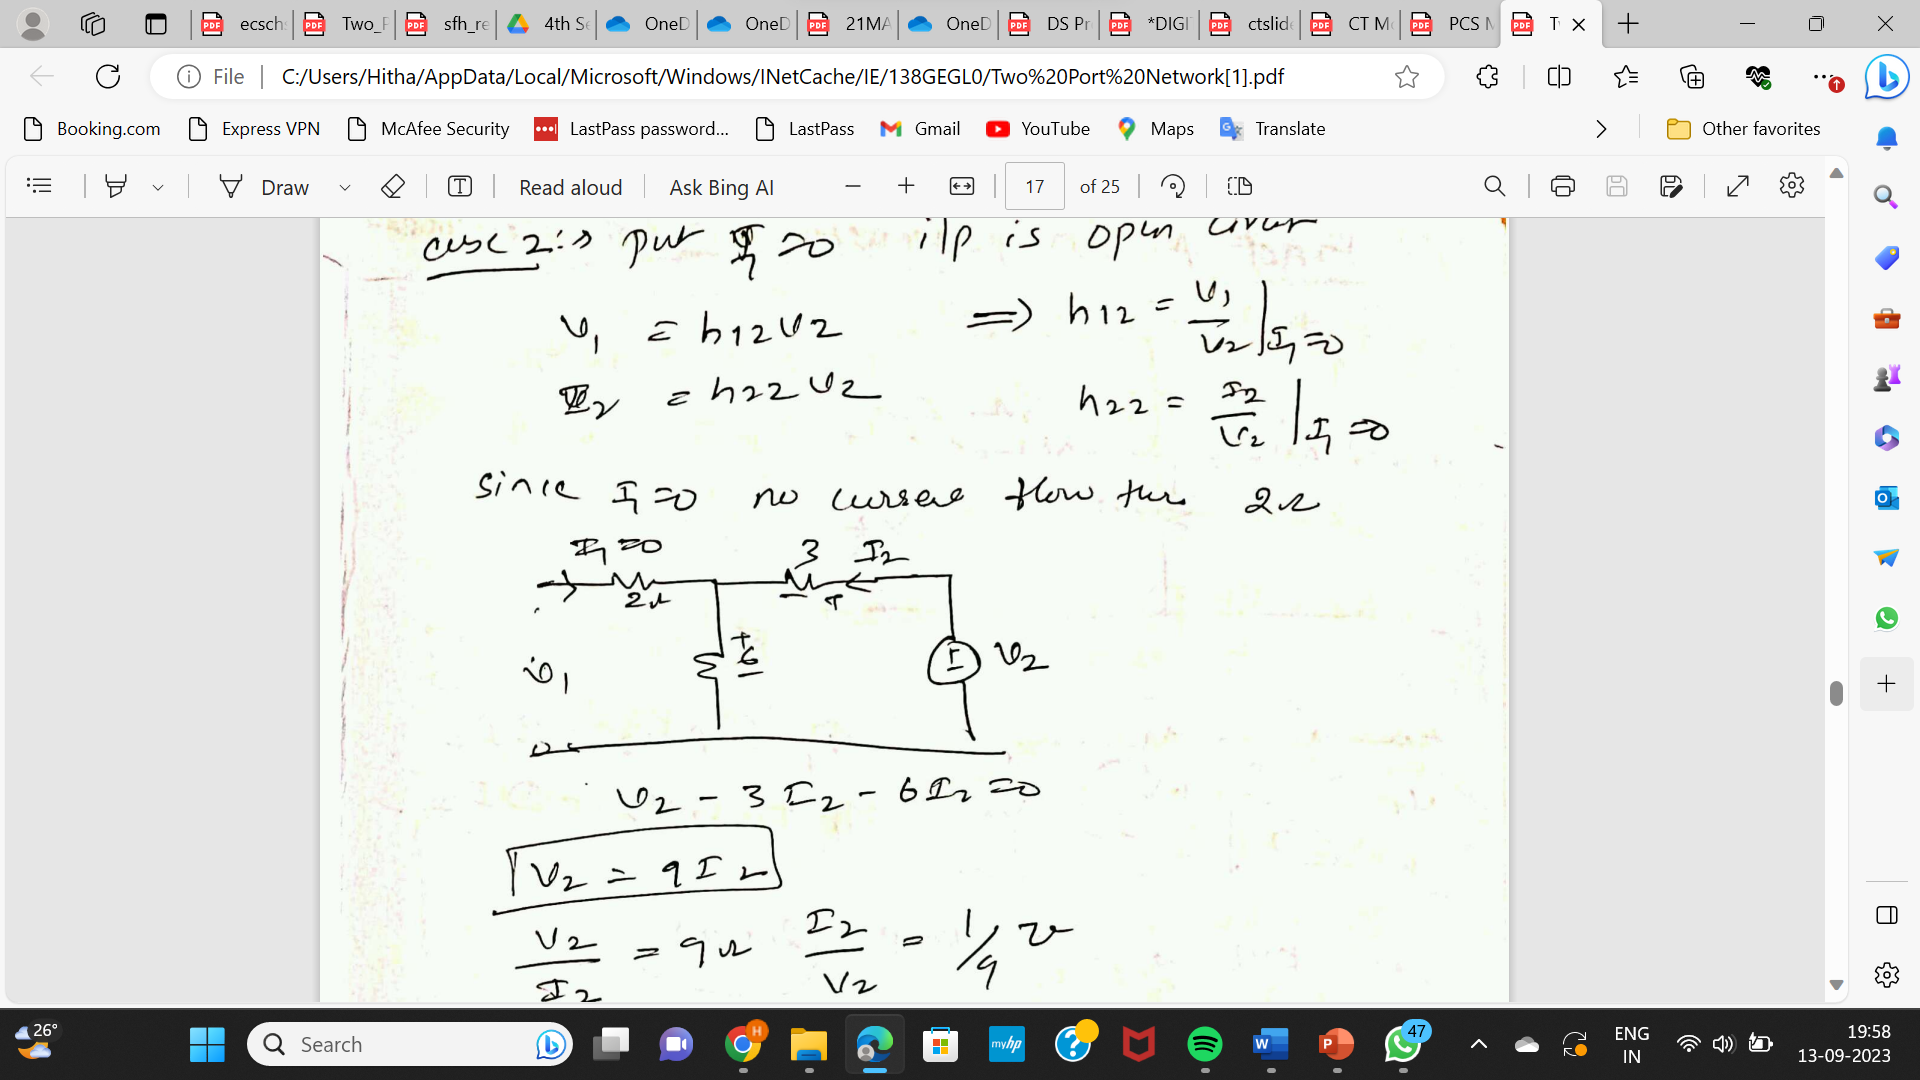 ecsch
Two_P
sfh_re
4th Se
OneD
OneD
21MA
OneD
DS Pr
*DIGI
ctslide
CT Mo
PCS M
Tw
File
C:/Users/Hitha/AppData/Local/Microsoft/Windows/INetCache/IE/138GEGL0/Two%20Port%20Network[1].pdf
Booking.com
Express VPN
McAfee Security
LastPass password...
LastPass
Gmail
YouTube
Maps
Translate
Other favorites
Draw
Read aloud
Ask Bing AI
17
of 25
case 2:→ put I1 = 0 i/p is open
V1 = h12V2 ⇒ h12 = V1/V2 | I1=0
I2 = h22V2 h22 = I2/V2 | I1=0
since I1=0 no current flow thr. 2Ω
I1=0 3 I2
2Ω
+
6
V1
V2
V2 - 3I2 - 6I2 = 0
V2 = 9I2
V2/I2 = 9Ω I2/V2 = 1/9 ʊ
26°
Search
H
myhp
47
ENG
IN
19:58
13-09-2023